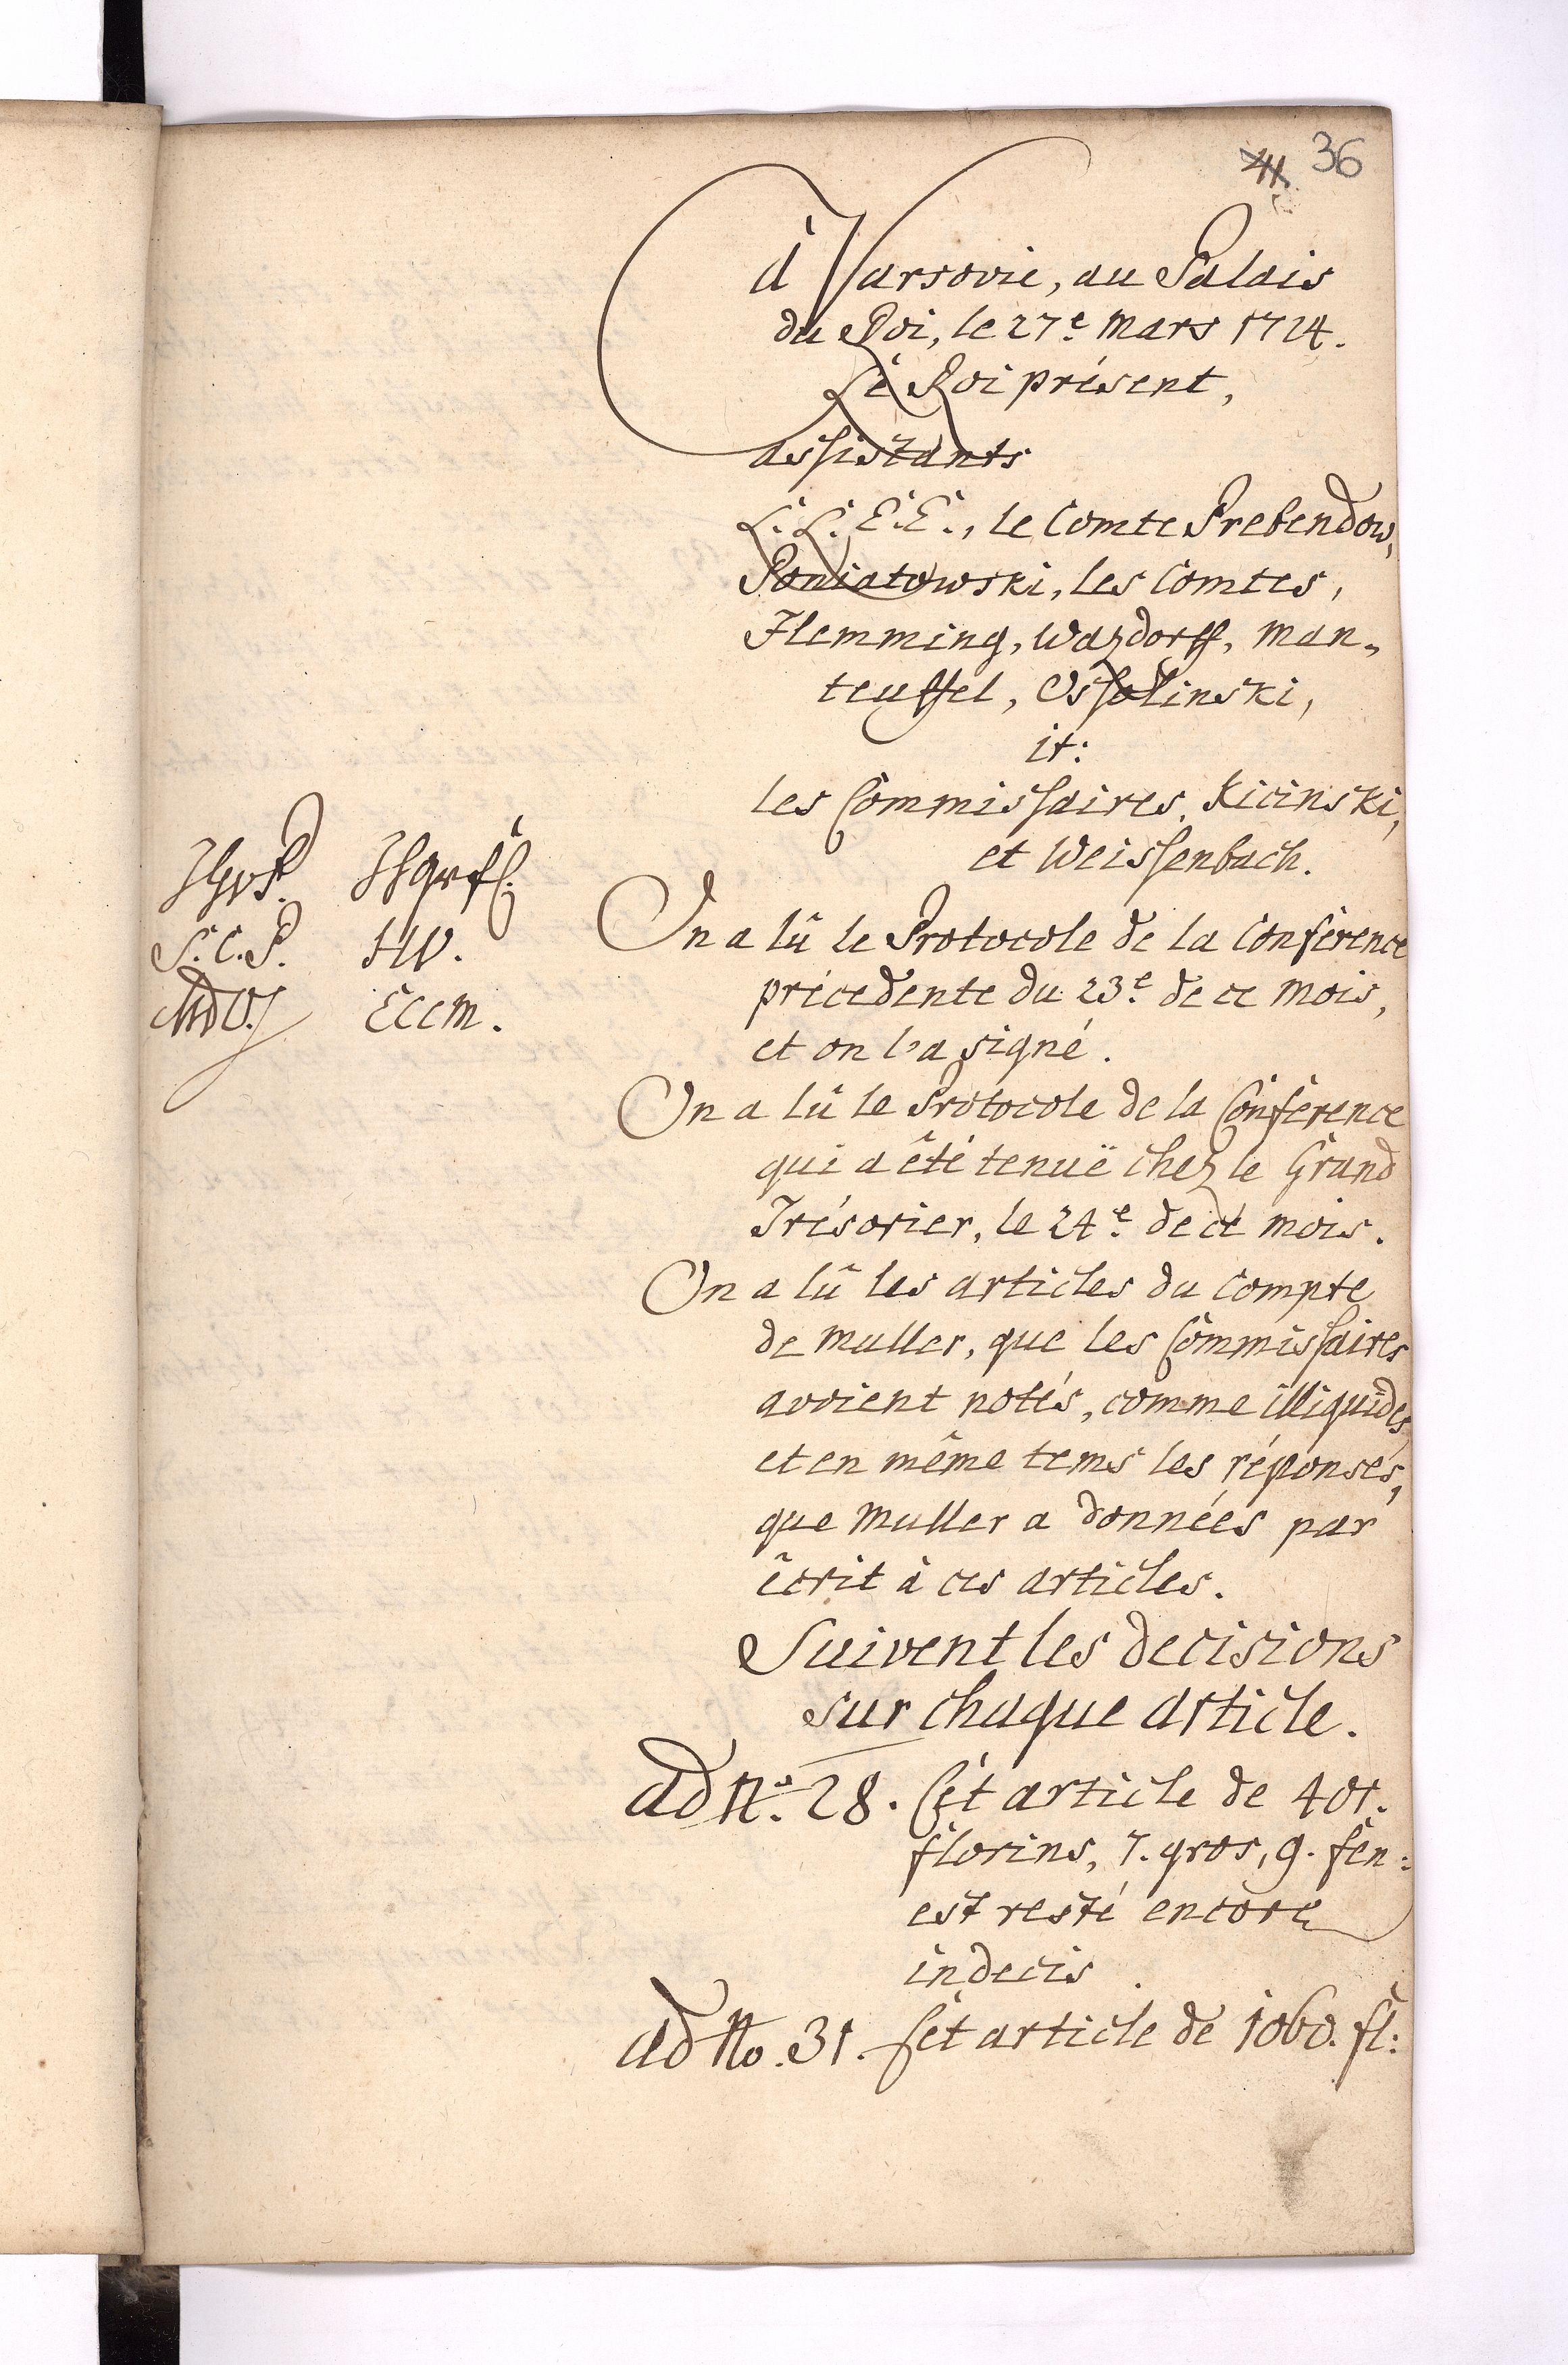 36
à Varsovie, au Palais
du Roi, le 27e. Mars 1724.
Le Roi présent,
assistants
L. L. E. E., le Comte Prebendow,
Poniatowski, les Comtes,
Flemming, Wazdorff, Man-
teuffel, Ossolinski,
it:
les Commissaires, Kicinski,
et Weissenbach.
S. C. P. HW.
Eccm.
On a lû le Protocole de la Conférence
précedente du 23e. de ce mois,
et on l'a signé.
On a lû le Protocole de la Conférence
qui a êté tenuë chez le Grand
Trésorier, le 24e. de ce mois.
On a lû les articles du Compte
de Muller, que les Commissaires
avoient notés, comme illiquides,
et en même tems les réponses,
que Muller a données par
êcrit à ces articles.
Suivent les decisions
sur chaque article.
ad No. 28. Cet article de 401.
florins, 7. gros, 9. fen:
est resté encore
indecis.
ad No. 31. Cet article de 1060. fl: